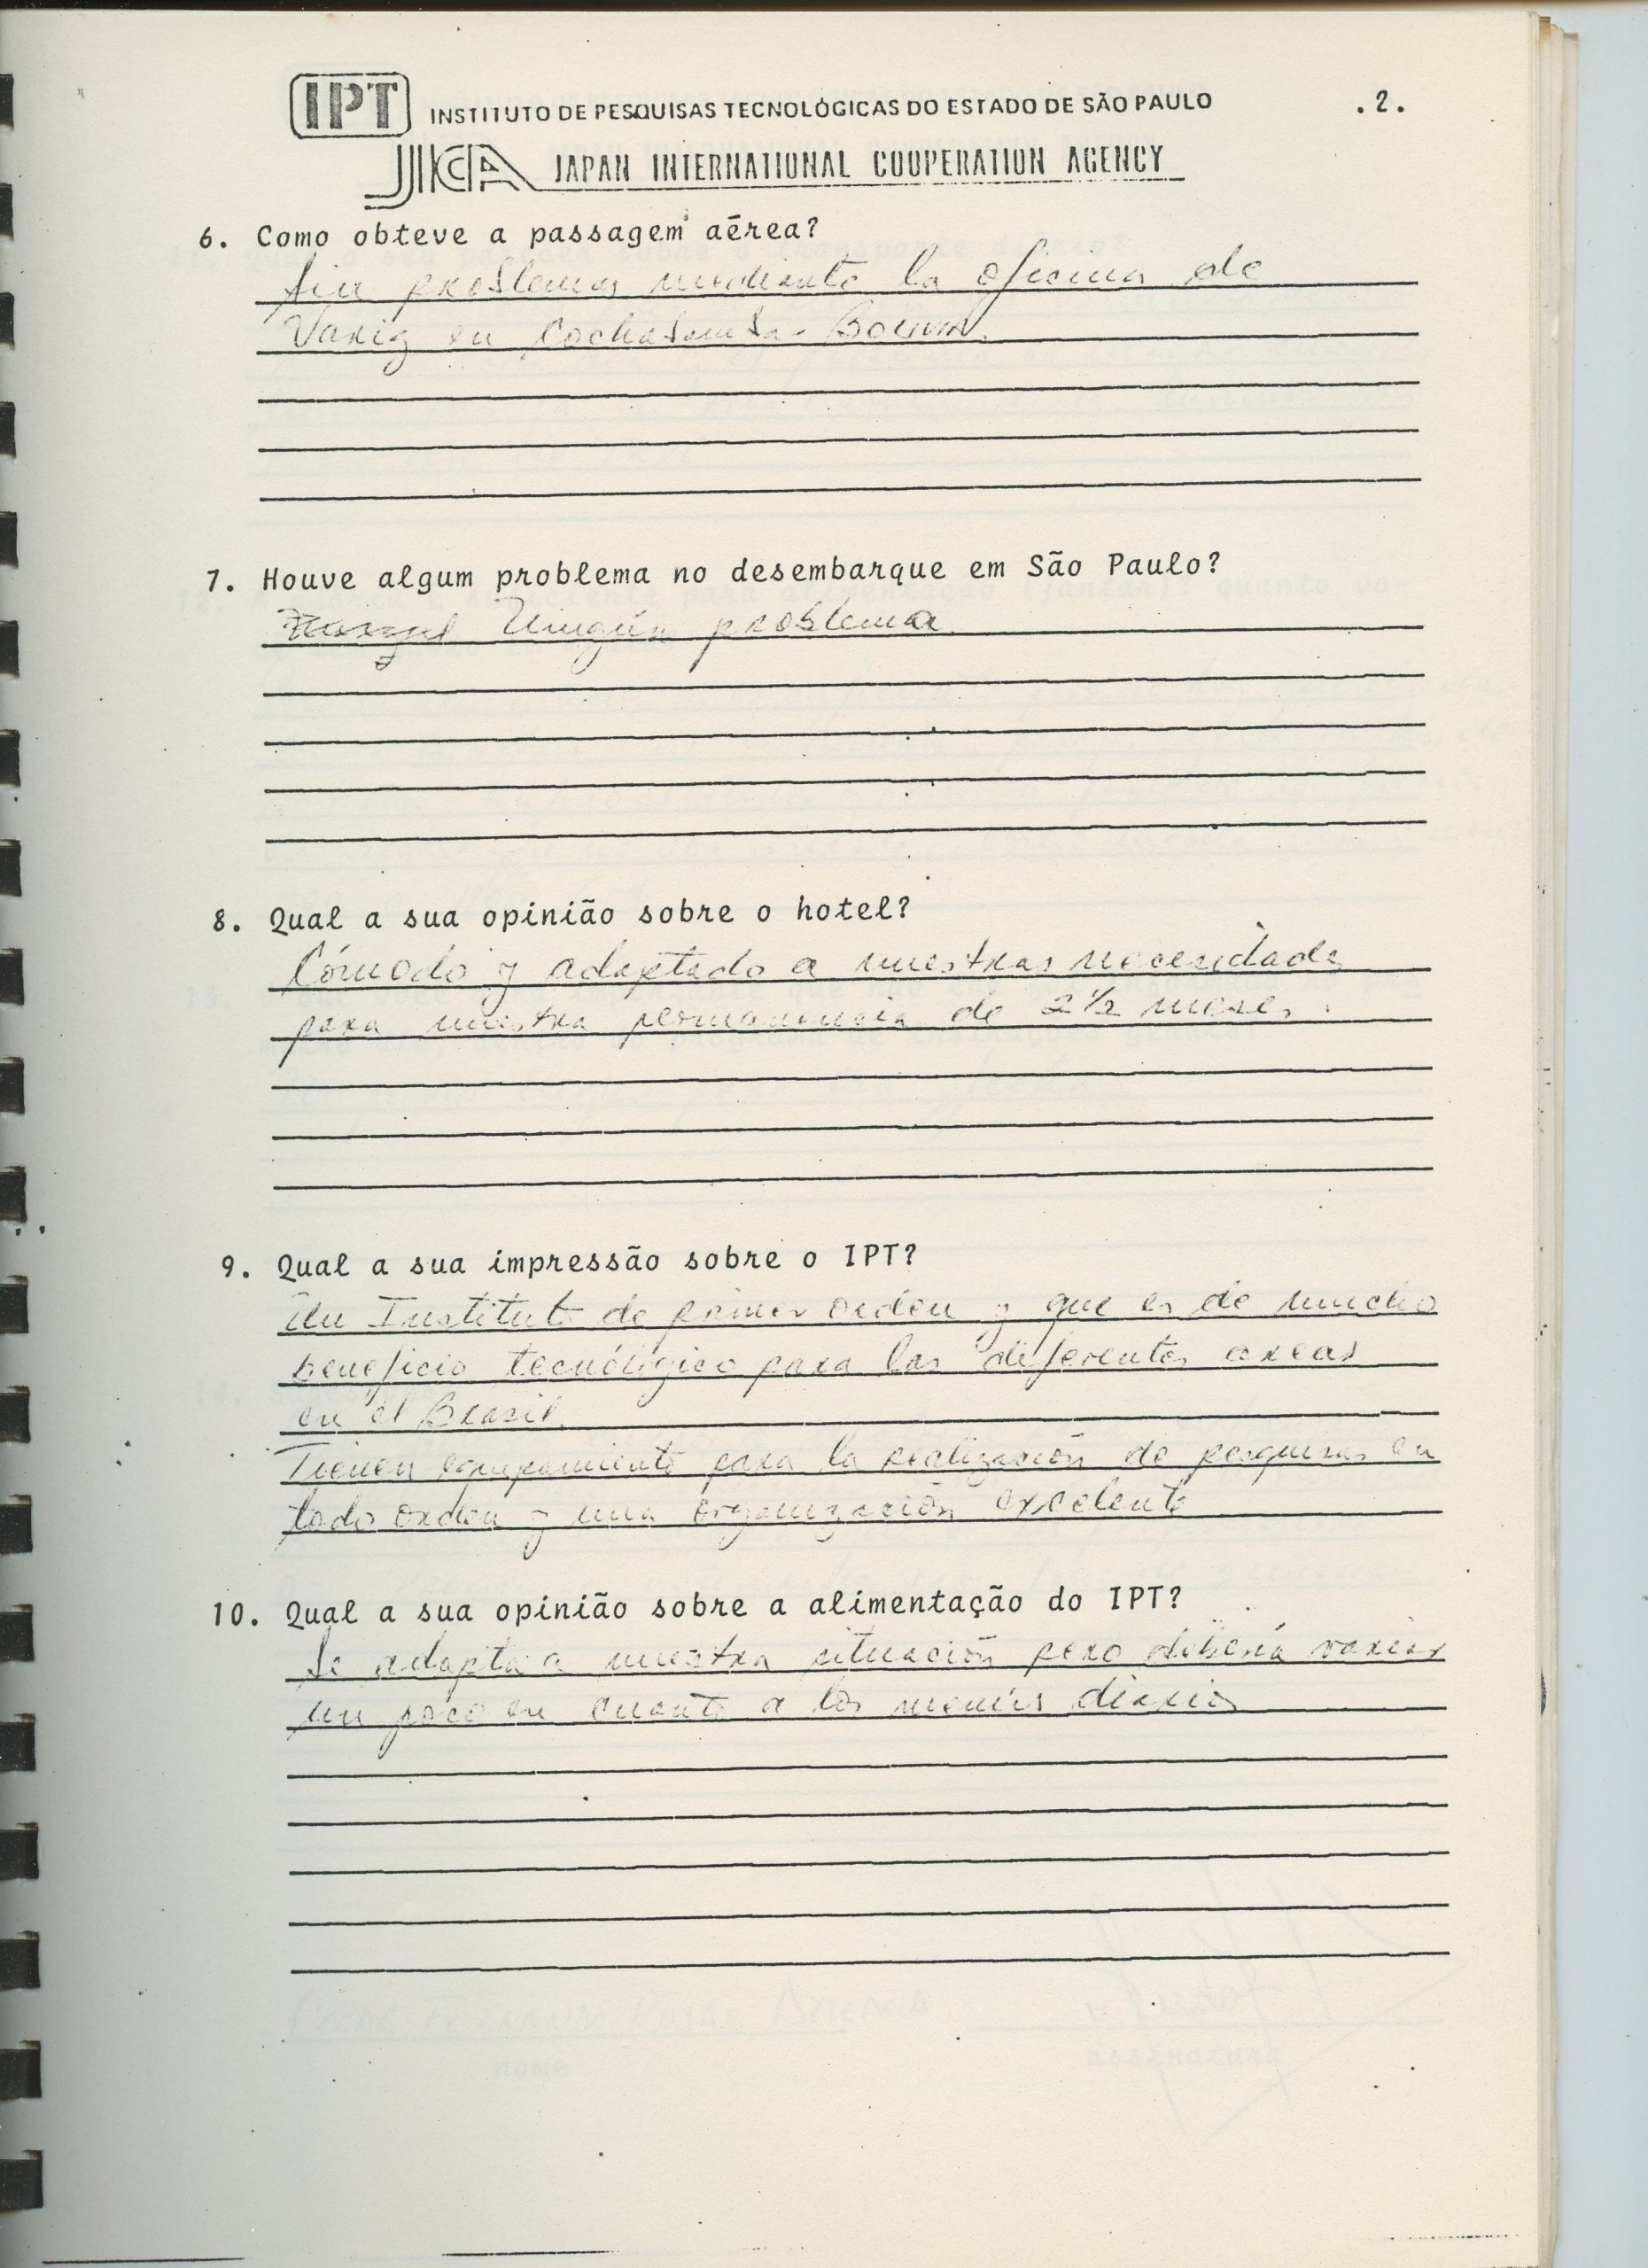 IPT INSTITUTO DE PESQUISAS TECNOLÓGICAS DO ESTADO DE SÃO PAULO .2.
JICA JAPAN INTERNATIONAL COOPERATION AGENCY
6. Como obteve a passagem aérea?
Sin problemas mediante la oficina de
Varig en Cochabamba - Bolivia.
7. Houve algum problema no desembarque em São Paulo?
Ningún problema
8. Qual a sua opinião sobre o hotel?
Cómodo y adaptado a nuestras necesidades
para nuestra permanencia de 2 1/2 meses.
9. Qual a sua impressão sobre o IPT?
Un Instituto de primer orden y que es de mucho
beneficio tecnológico para las diferentes areas
en el Brasil.
Tienen equipamiento para la realización de pesquisas en
todo orden y una organización excelente
10. Qual a sua opinião sobre a alimentação do IPT?
Se adapta a nuestra situación pero debería variar
un poco en cuanto a los menús diarios